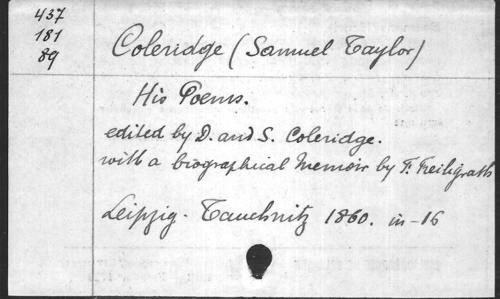 437
181
89
Coleridge (Samuel Taylor)
His Poems.
edited by D. and S. Coleridge.
with a biographical Memoir by F. Freiligrath
Leipzig - Tauchnitz 1860. in-16